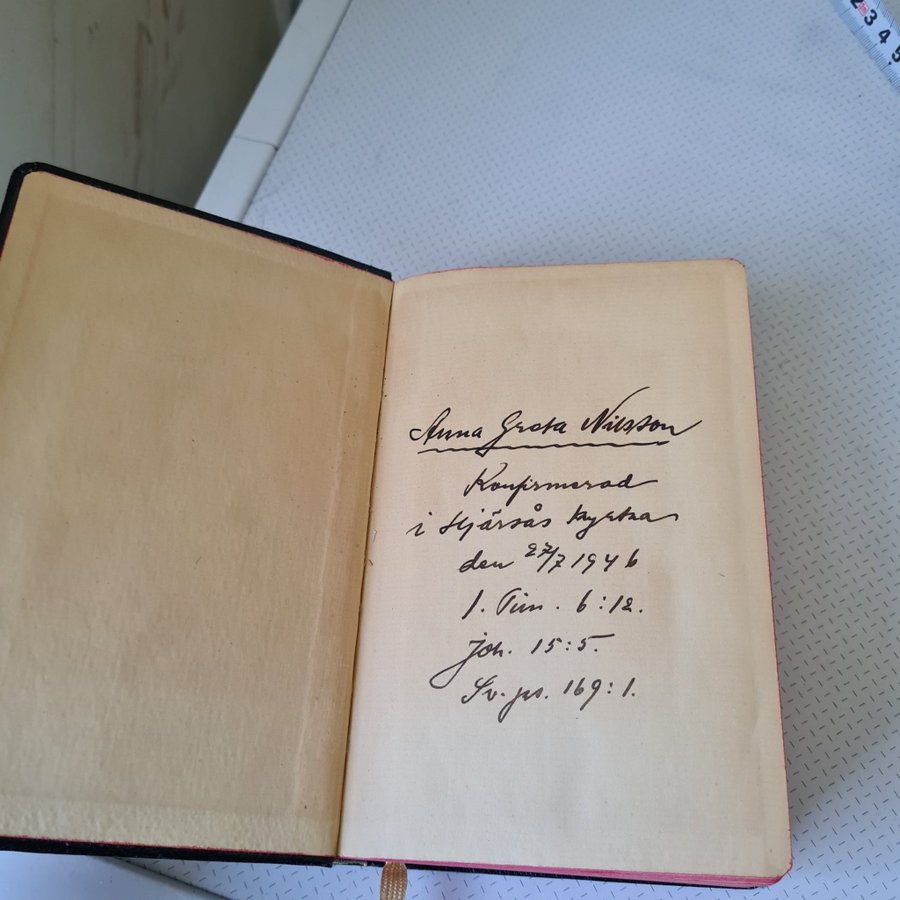 2 3 4 5
Anna Greta Nilsson
Konfirmerad
i Hjärsås kyrka
den 27/7 1946
1. Tim. 6:12.
Joh. 15:5.
Sv. ps. 169:1.